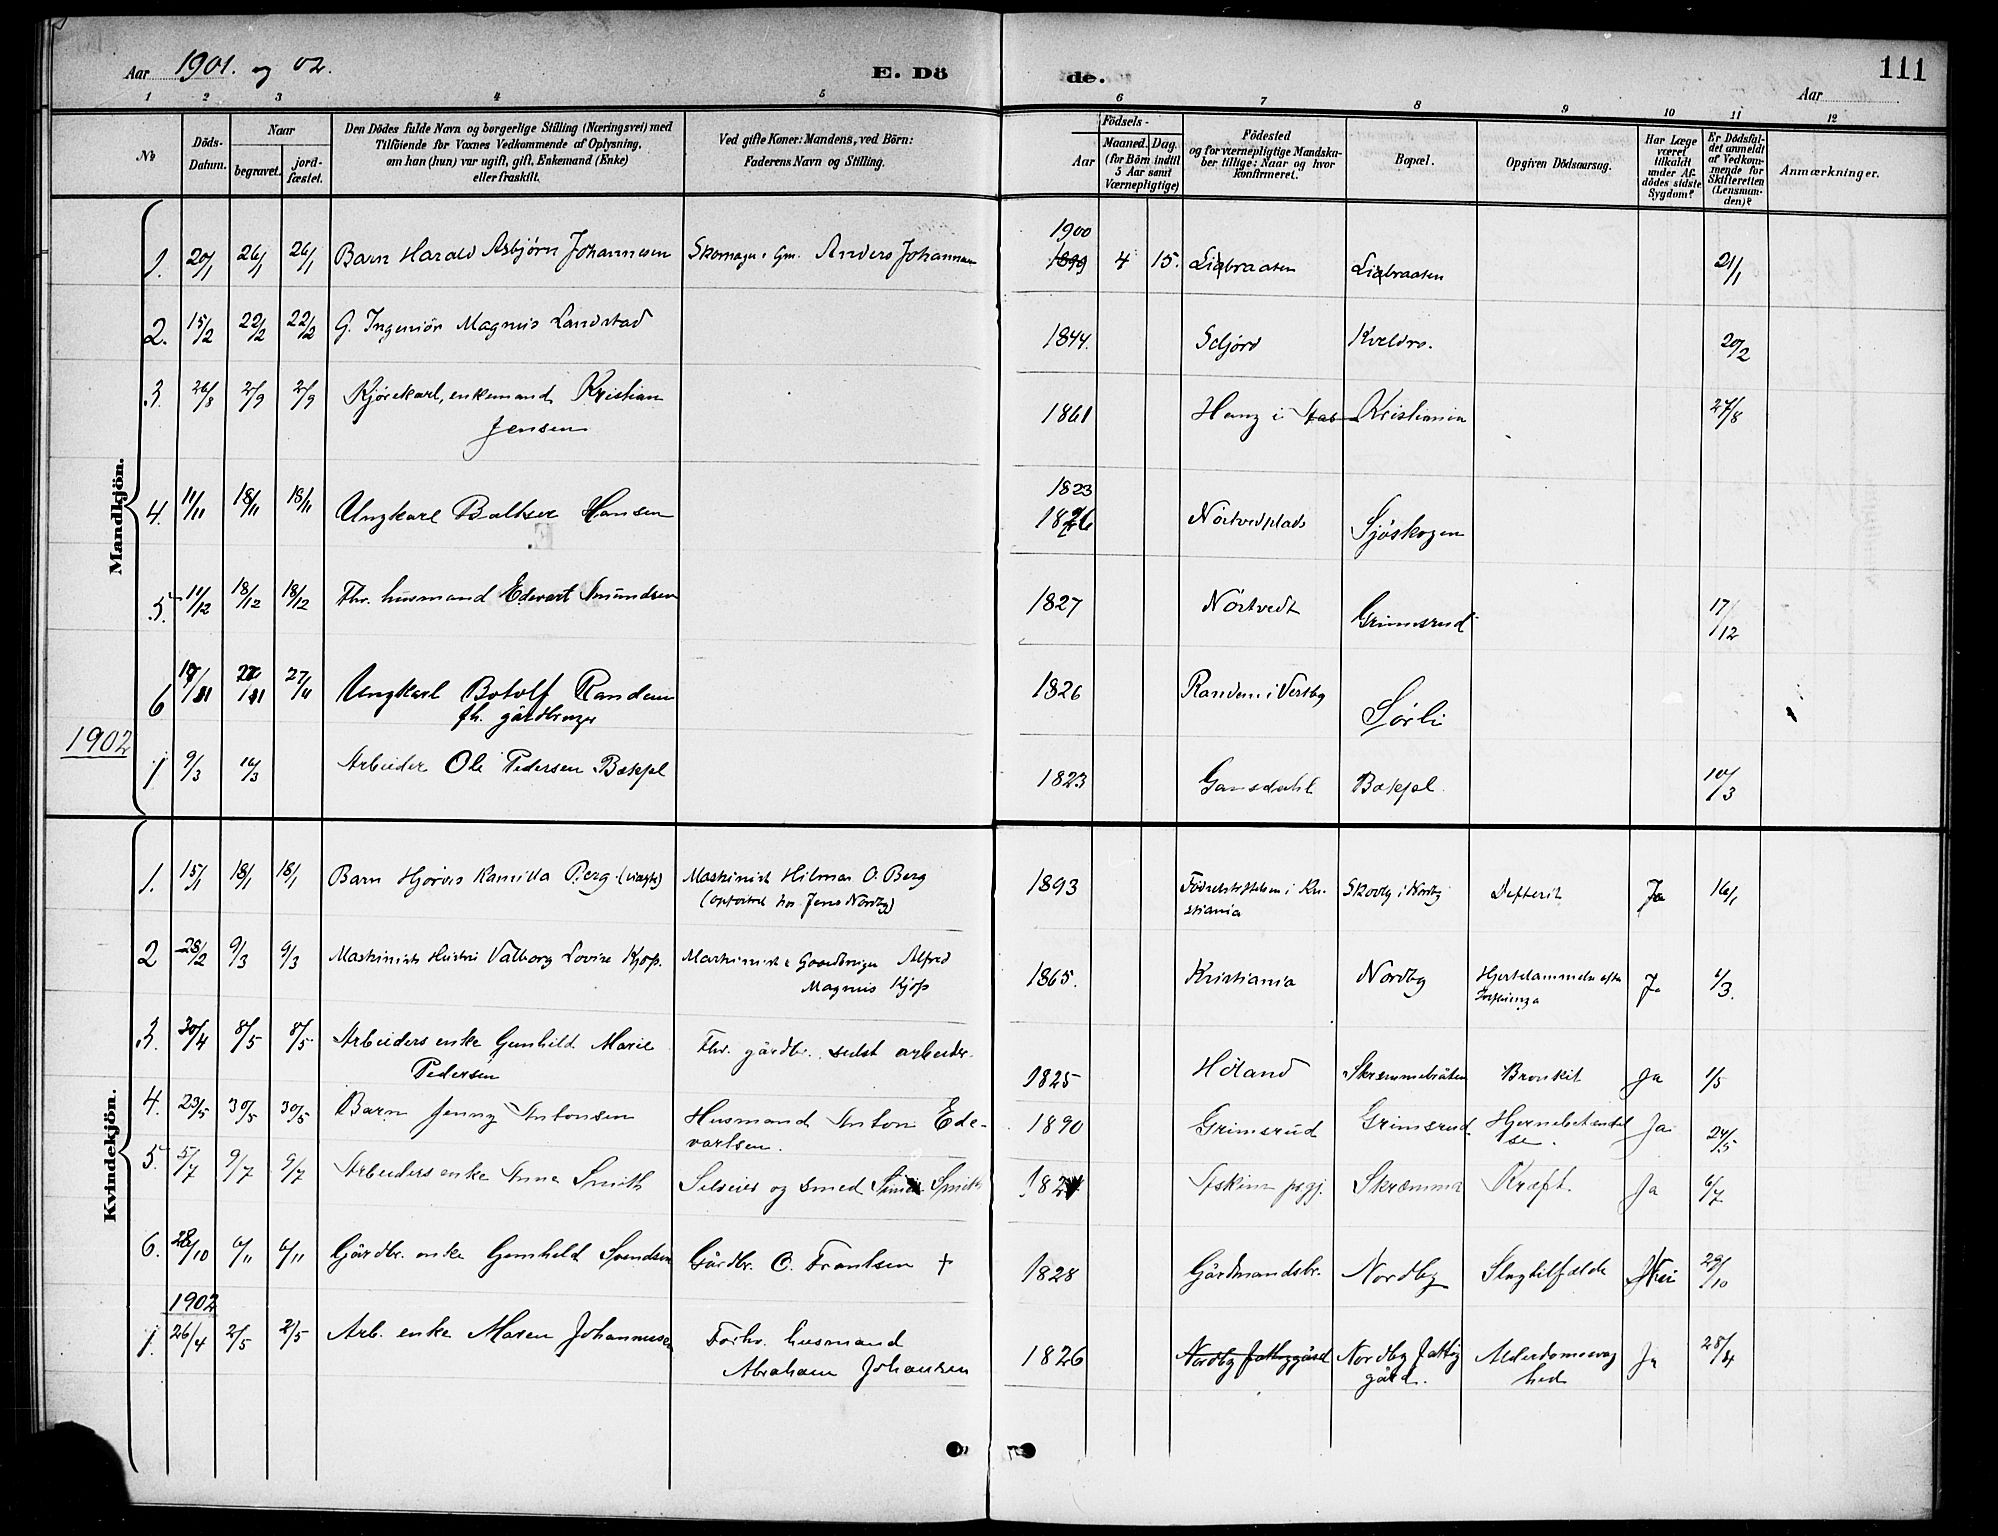 Aar 1901. og 02.
E. Dö
de.
111
Aar
1 2 3 4 5 6 7 8 9 10 11 12
No
Döds-Datum.
Naar
begravet.
jordfæstet.
Den Dödes fulde Navn og borgerlige Stilling (Næringsvei) med
Tilföiende for Voxnes Vedkommende af Oplysning,
om han (hun) var ugift, gift, Enkemand (Enke)
eller fraskilt.
Ved gifte Koner: Mandens, ved Börn:
Faderens Navn og Stilling.
Födsels-
Aar
Maaned. Dag.
(for Börn indtil
5 Aar samt
Værnepligtige)
Födested
og for værnepligtige Mandska-
ber tillige: Naar og hvor
konfirmeret.
Bopæl.
Opgiven Dödsaarsag.
Har Læge
været
tilkaldt
under Af-
dödes sidste
Sygdom?
Er Dödsfal-
det anmeldt
af Vedkom-
mende for
Skifteretten
(Lensman-
den)?
Anmærkninger.
Mandkjön.
1900
1. 20/1 26/1 26/1 Barn Harald Asbjørn Johannesen Skomager Anders Johannesen 1899 4 15. Liabraaten Liabraaten 21/1
2. 15/2 22/2 22/2 G. Ingeniör Magnus Landstad 1844. Seljord Kveldro. 20/2
3. 26/8 2/9 2/9 Kjörekarl, enkemand Kristian 1861 Haug i Kristiania 27/8
Jensen
1823
4. 11/11 18/11 18/11 Ungkarl Baltser Hansen 1826 Nörtvedplads Sjöskogen
5. 11/12 18/12 18/12 Fhv. husmand Edevart Amundsen 1827 Nörtvedt Grimsrud 17/12
6 17/11 27/11 27/11 Ungkarl Botolf Randem 1826 Randem i Vestby Sørli
fh. gårdbruger
1902
1 9/3 16/3 Arbeider Ole Pedersen Bækjel 1823 Gansdahl Bækjel. 10/3
Kvindekjön.
1. 15/1 18/1 18/1 Barn Hjørdis Kamilla Berg Maskinist Hilmar O. Berg 1893 Födselsstiftelsen i Kri- Skovly i Nordby Defterit Ja 16/1
(opfostret hos Jens Nordby) stiania
2 28/2 9/3 9/3 Maskinists Hustru Valborg Lovise Kjos. Maskinist & Gaardbruger Alfred 1865. Kristiania Nordby Hjertelammelse efter Ja 1/3.
Magnus Kjos
3. 30/4 8/5 8/5 Arbeiders enke Gunhild Marie Fhv. gårdbr. sidst arbeider. 1825 Höland Skræmmebråten Bronkit Ja 1/5
Pedersen
4. 23/5 30/5 30/5 Barn Jenny Antonsen Husmand Anton Ede- 1890 Grimsrud Grimsrud Hjernebetændel Ja 24/5
vartsen. se.
5. 5/7 9/7 9/7 Arbeiders enke Anna Smith Selveier og smed Smith 182 Askim psgj. Skræmma Kræft. Ja 6/7
6. 28/10 6/11 6/11 Gårdbr. enke Gunhild Svendsen Gårdbr. O. Frantsen † 1828 Gårdmandsbr. Nordby Slagtilfælde Nei 29/10
1902
1. 26/4 2/5 2/5 Arb. enke Maren Johannesen Forhv. husmand 1826 Nordby fattiggård Nordby fattig Alderdomssvag Ja 28/4
Abraham Johansen gård. hed